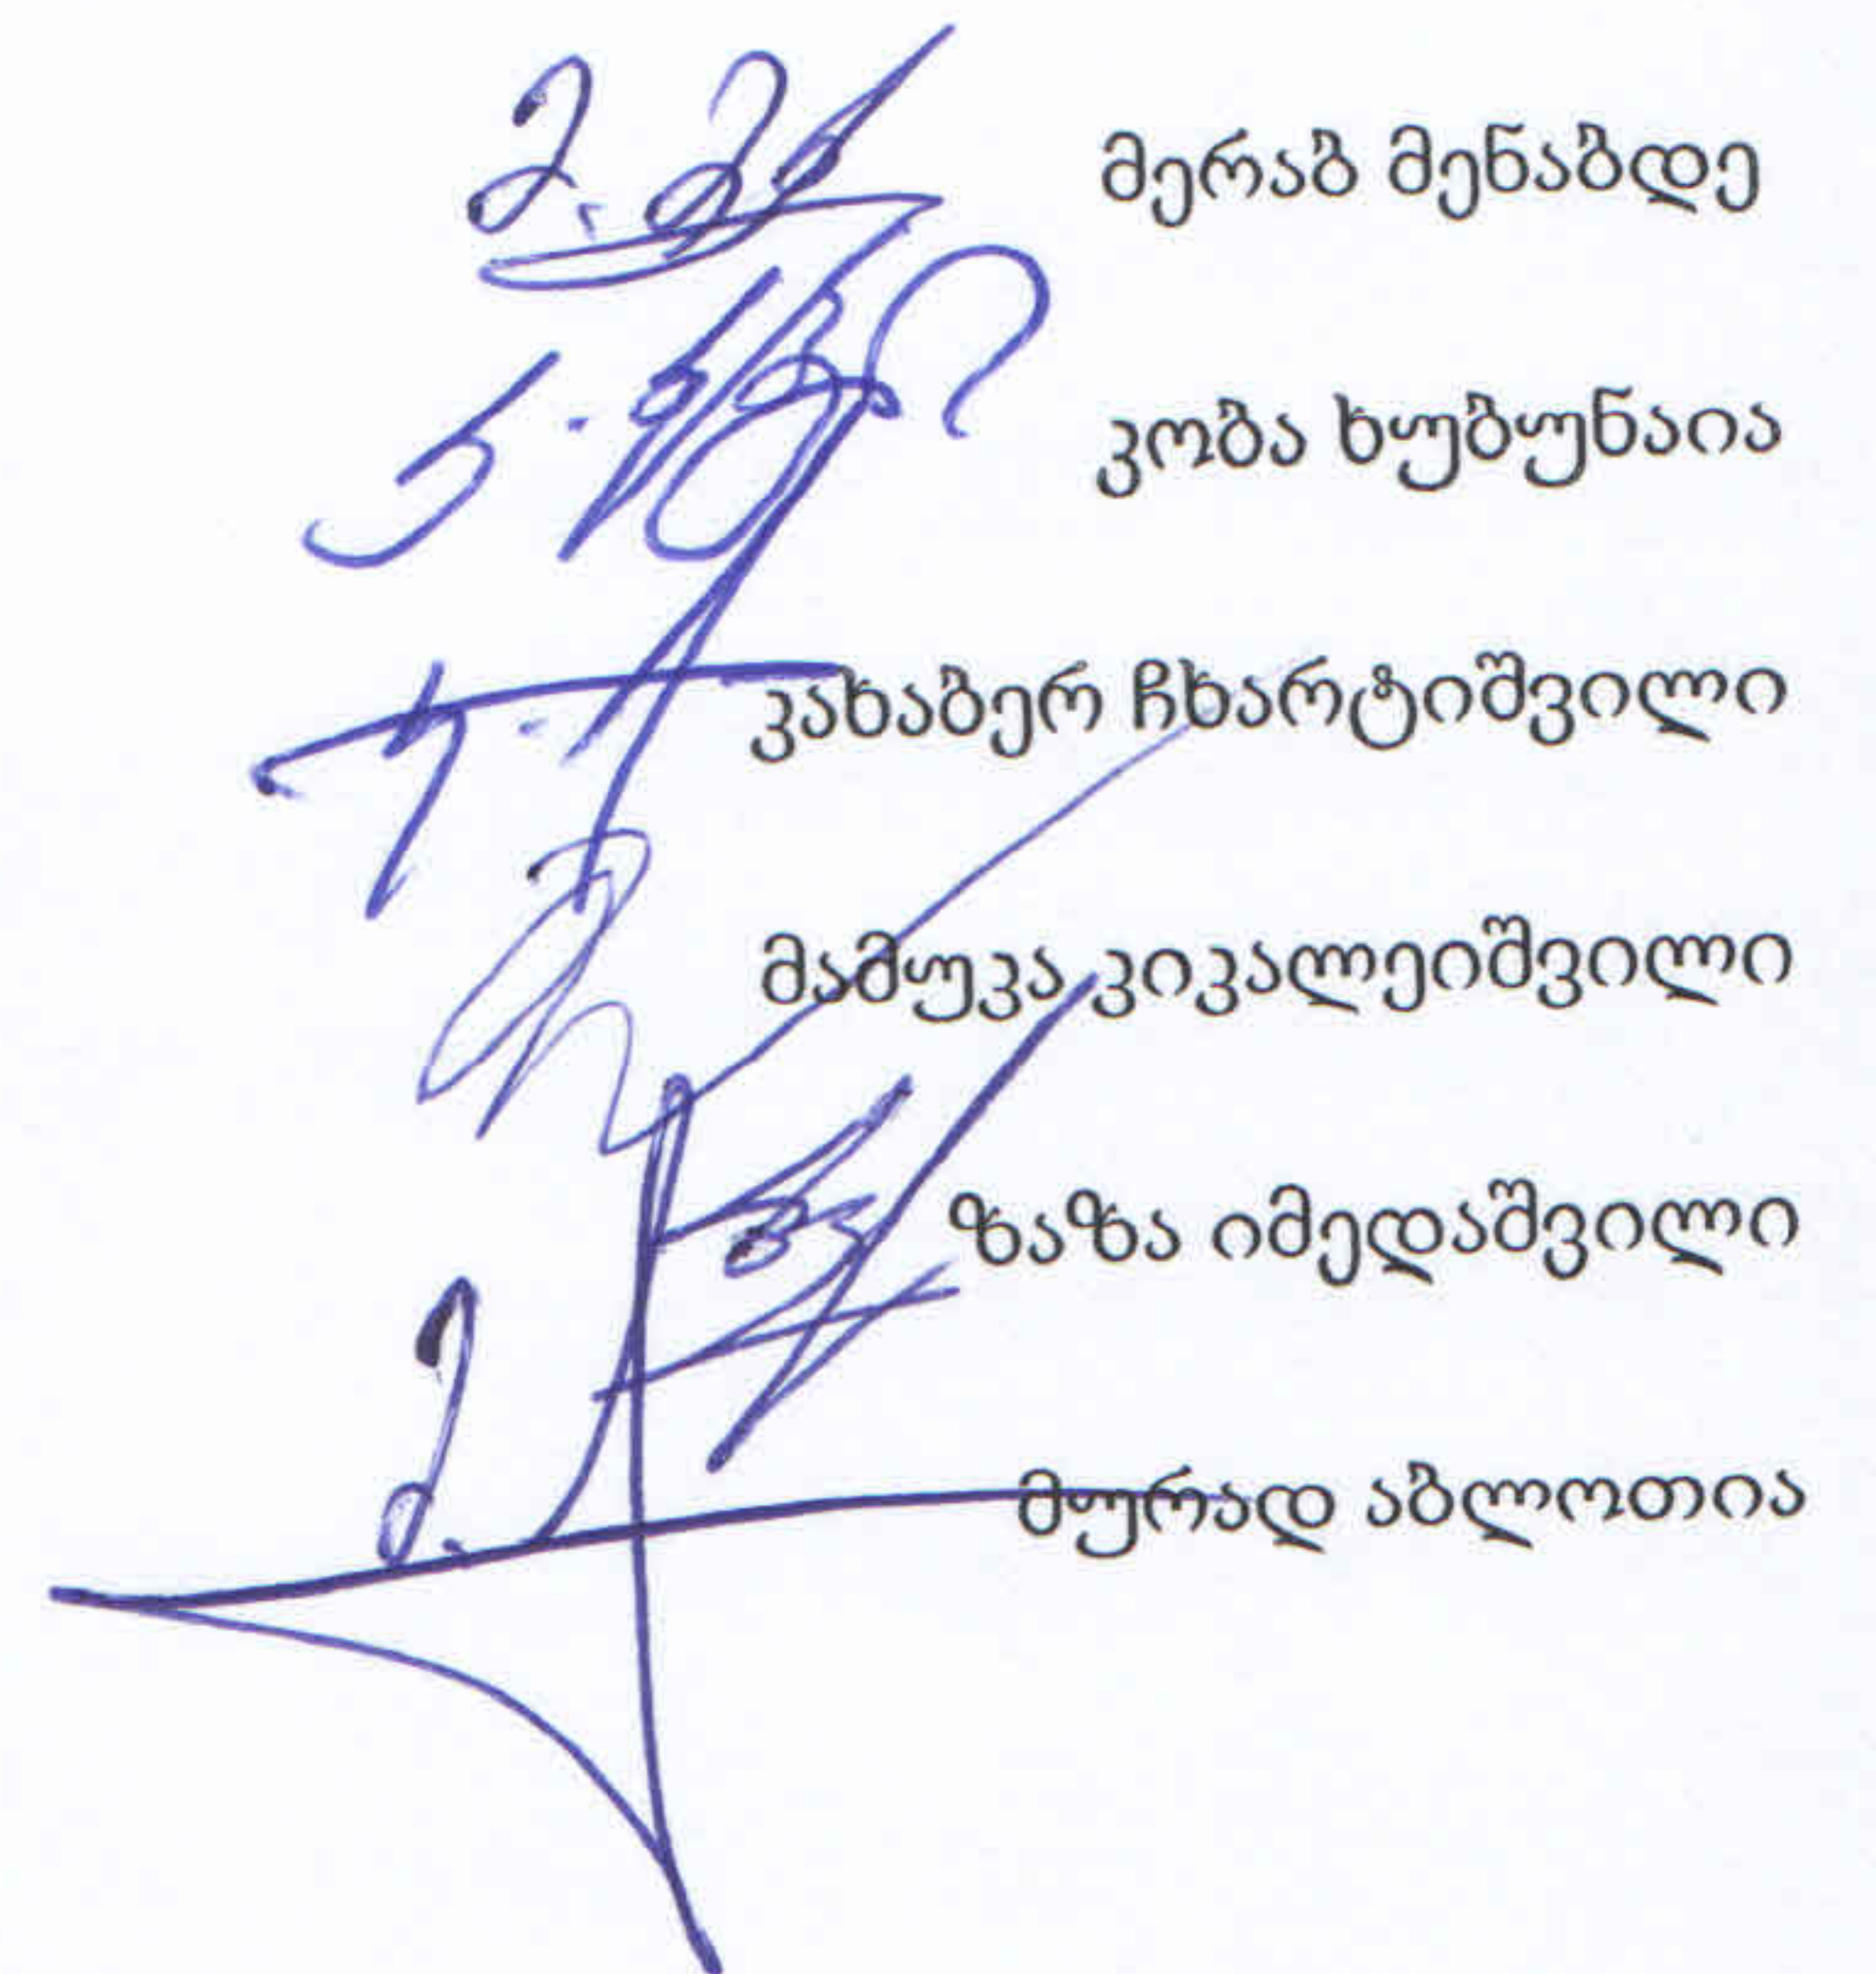 მერაბ მენაბდე
კობა ხუბუნაია
კახაბერ ჩხარტიშვილი
მამუკა კიკალეიშვილი
ზაზა იმედაშვილი
მურად აბლოთია